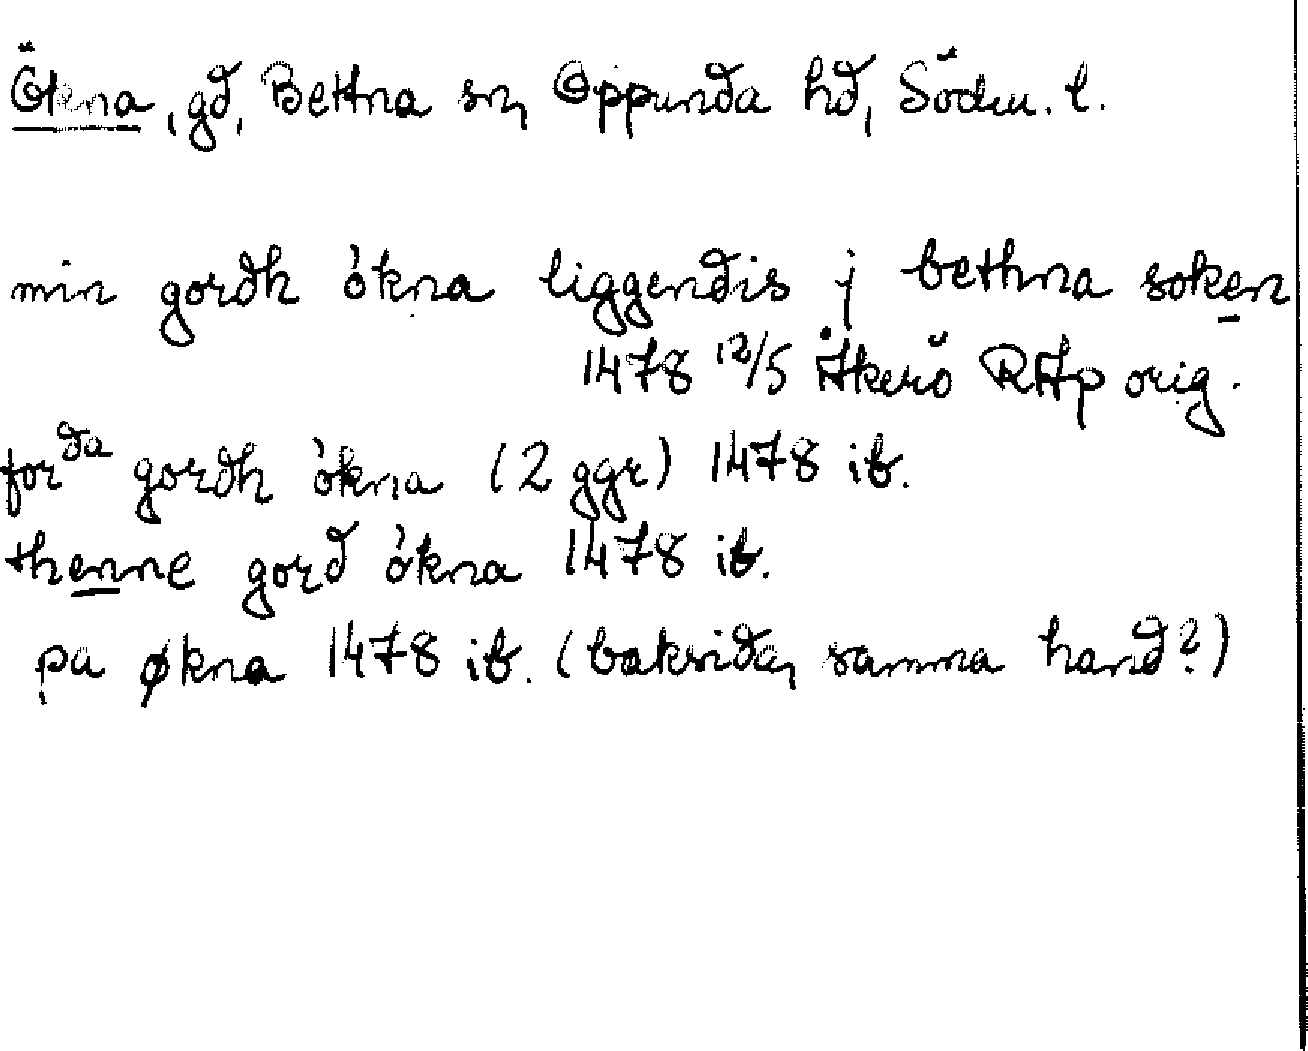 Ökna, gd, Bettna sn, Oppunda hd, Södm. l.
min gordh ókna liggendis j bethna soken
1478 12/5 Åkerö RAp orig.
for da gordh ókna (2 ggr) 1478 ib.
thenne gord ókna 1478 ib.
pa økna 1478 ib. (baksida, samma hand?)